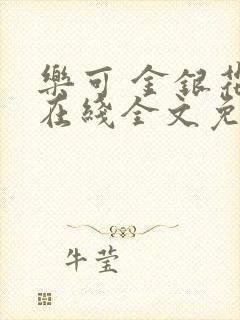 樂可 金銀花
在綫全文免
牛莹